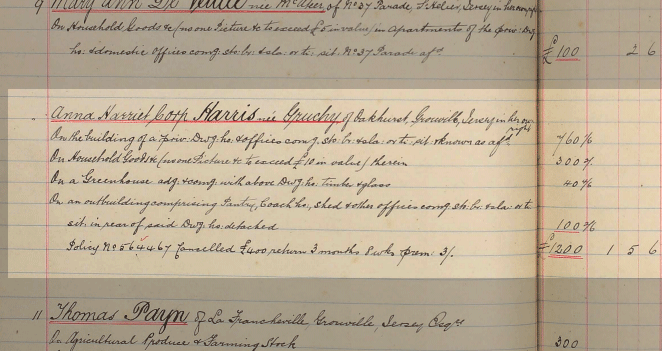 9 Mary Ann De née of No 37 Parade, St Helier, Jersey in her own right
On Household Goods &c (no one Picture &c to exceed £5 in value) in Apartments of the priv: Dwg
ho. & domestic offices comg. sto. br. & sla. or ti. sit. No 37 Parade afsd. £100 2 6
" Anna Harriet Corp Harris née Gruchy of Oakhurst, Grouville, Jersey in her own right
On the building of a priv. Dwg ho. & offices comg. sto. br. & sla. or ti. sit. & known as afsd. 760%
On Household Goods &c (no one Picture &c to exceed £10 in value) therein 300%
On a Greenhouse adg. & comg. with above Dwg ho. timber & glass 40%
On an outbuilding comprising Pantry, Coach ho., shed & other offices comg. sto. br. & sla. or ti.
sit. in rear of said Dwg ho. detached 100%
Policy No 564467 Cancelled £400, return 3 months 8 wks prem: 3/. £1200 1 5 6
11 Thomas Payn of La Francheville, Grouville, Jersey Esqre
On Agricultural Produce & Farming Stock 300